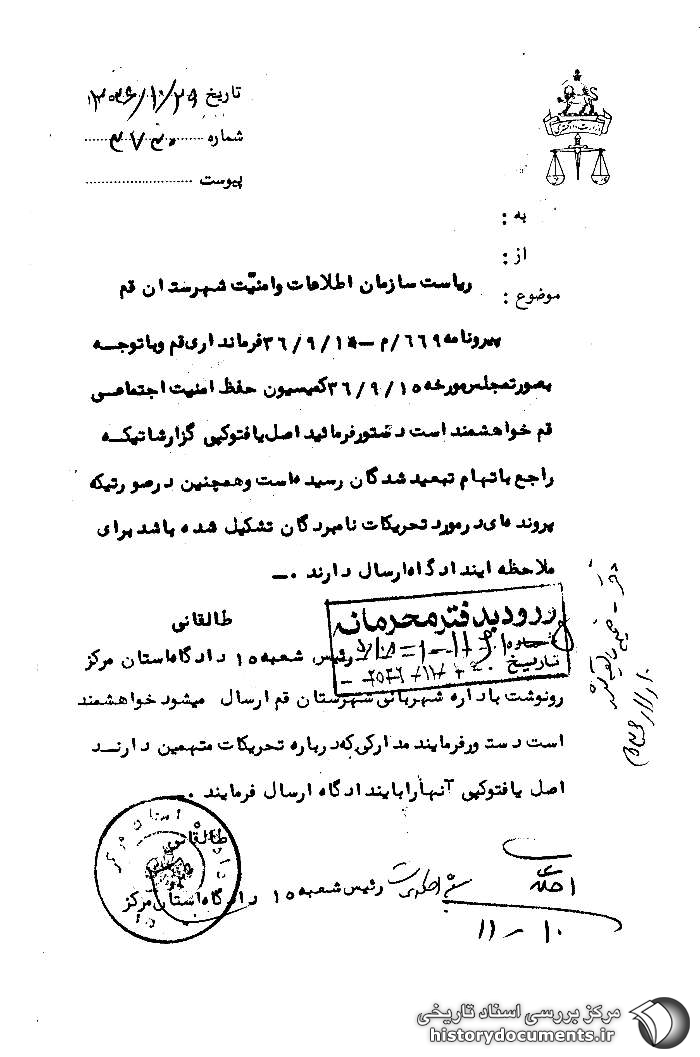 تاریخ ۲۵۳۶/۱۰/۲۹
شماره ۳۷۳۰
پیوست
به :
از :
موضوع :
ریاست سازمان اطلاعات وامنیّت شهرستان قم
پیرونامه ۶۶۹/م – ۳۶/۹/۱۴ فرمانداری قم وباتوجه
بصورتمجلس مورخه ۳۶/۹/۱۵ کمیسیون حفظ امنیت اجتماعی
قم خواهشمند است دستورفرمائید اصل یافتوکپی گزارشاتیکه
راجع باتهام تبعید شدگان رسیده است وهمچنین درصورتیکه
پرونده ای درمورد تحریکات نامبردگان تشکیل شده باشد برای
ملاحظه ایندادگاه ارسال دارند . –
طالقانی
رئیس شعبه ۱۵ دادگاه استان مرکز
ورود بدفتر محرمانه
شماره
تاریخ
رونوشت باداره شهربانی شهرستان قم ارسال میشود خواهشمند
است دستورفرمایند مدارکی که درباره تحریکات متهمین دارنـد
اصل یافتوکپی آنهارا بایندادگاه ارسال فرمایند . –
طالقانی
رئیس شعبه ۱۵ دادگاه استان مرکز
۱۰ – ۱۱
مرکز بررسی اسناد تاریخی
historydocuments.ir